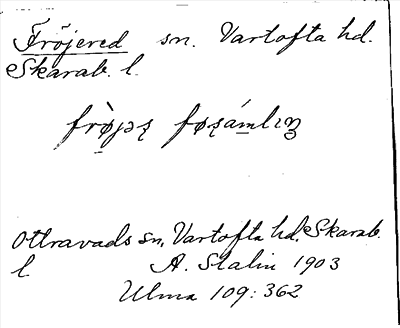 Fröjered sn. Vartofta hd.
Skarab. l.
Ottravads sn, Vartofta hd, Skarab.
l A. Stalin 1903
Ulma 109:362